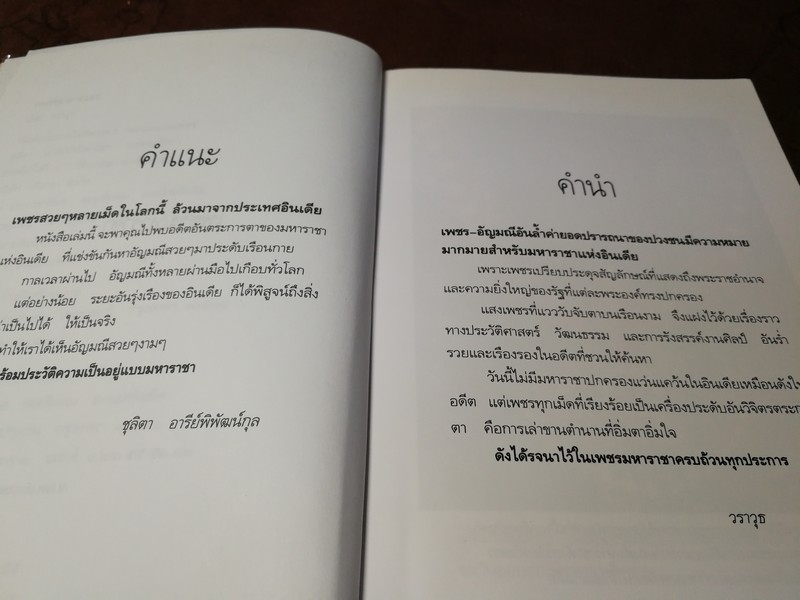 คำแนะ
เพชรสวยๆหลายเม็ดในโลกนี้ ล้วนมาจากประเทศอินเดีย
หนังสือเล่มนี้ จะพาคุณไปพบอดีตอันตระการตาของมหาราชา
แห่งอินเดีย ที่แข่งขันกันหาอัญมณีสวยๆมาประดับเรือนกาย
กาลเวลาผ่านไป อัญมณีทั้งหลายผ่านมือไปเกือบทั่วโลก
แต่อย่างน้อย ระยะอันรุ่งเรืองของอินเดีย ก็ได้พิสูจน์ถึงสิ่ง
เป็นไปได้ ให้เป็นจริง
ทำให้เราได้เห็นอัญมณีสวยๆงามๆ
ร้อมประวัติความเป็นอยู่แบบมหาราชา
ชุลิตา อารีย์พิพัฒน์กุล
คำนำ
เพชร-อัญมณีอันล้ำค่ายอดปรารถนาของปวงชนมีความหมาย
มากมายสำหรับมหาราชาแห่งอินเดีย
เพราะเพชรเปรียบประดุจสัญลักษณ์ที่แสดงถึงพระราชอำนาจ
และความยิ่งใหญ่ของรัฐที่แต่ละพระองค์ทรงปกครอง
แสงเพชรที่แวววับจับตาบนเรือนงาม จึงแฝงไว้ด้วยเรื่องราว
ทางประวัติศาสตร์ วัฒนธรรม และการรังสรรค์งานศิลป์ อันร่ำ
รวยและเรืองรองในอดีตที่ชวนให้ค้นหา
วันนี้ไม่มีมหาราชาปกครองแว่นแคว้นในอินเดียเหมือนดังใน
อดีต แต่เพชรทุกเม็ดที่เรียงร้อยเป็นเครื่องประดับอันวิจิตรตระกา
ตา คือการเล่าขานตำนานที่อิ่มตาอิ่มใจ
ดังได้รจนาไว้ในเพชรมหาราชาครบถ้วนทุกประการ
วราวุธ